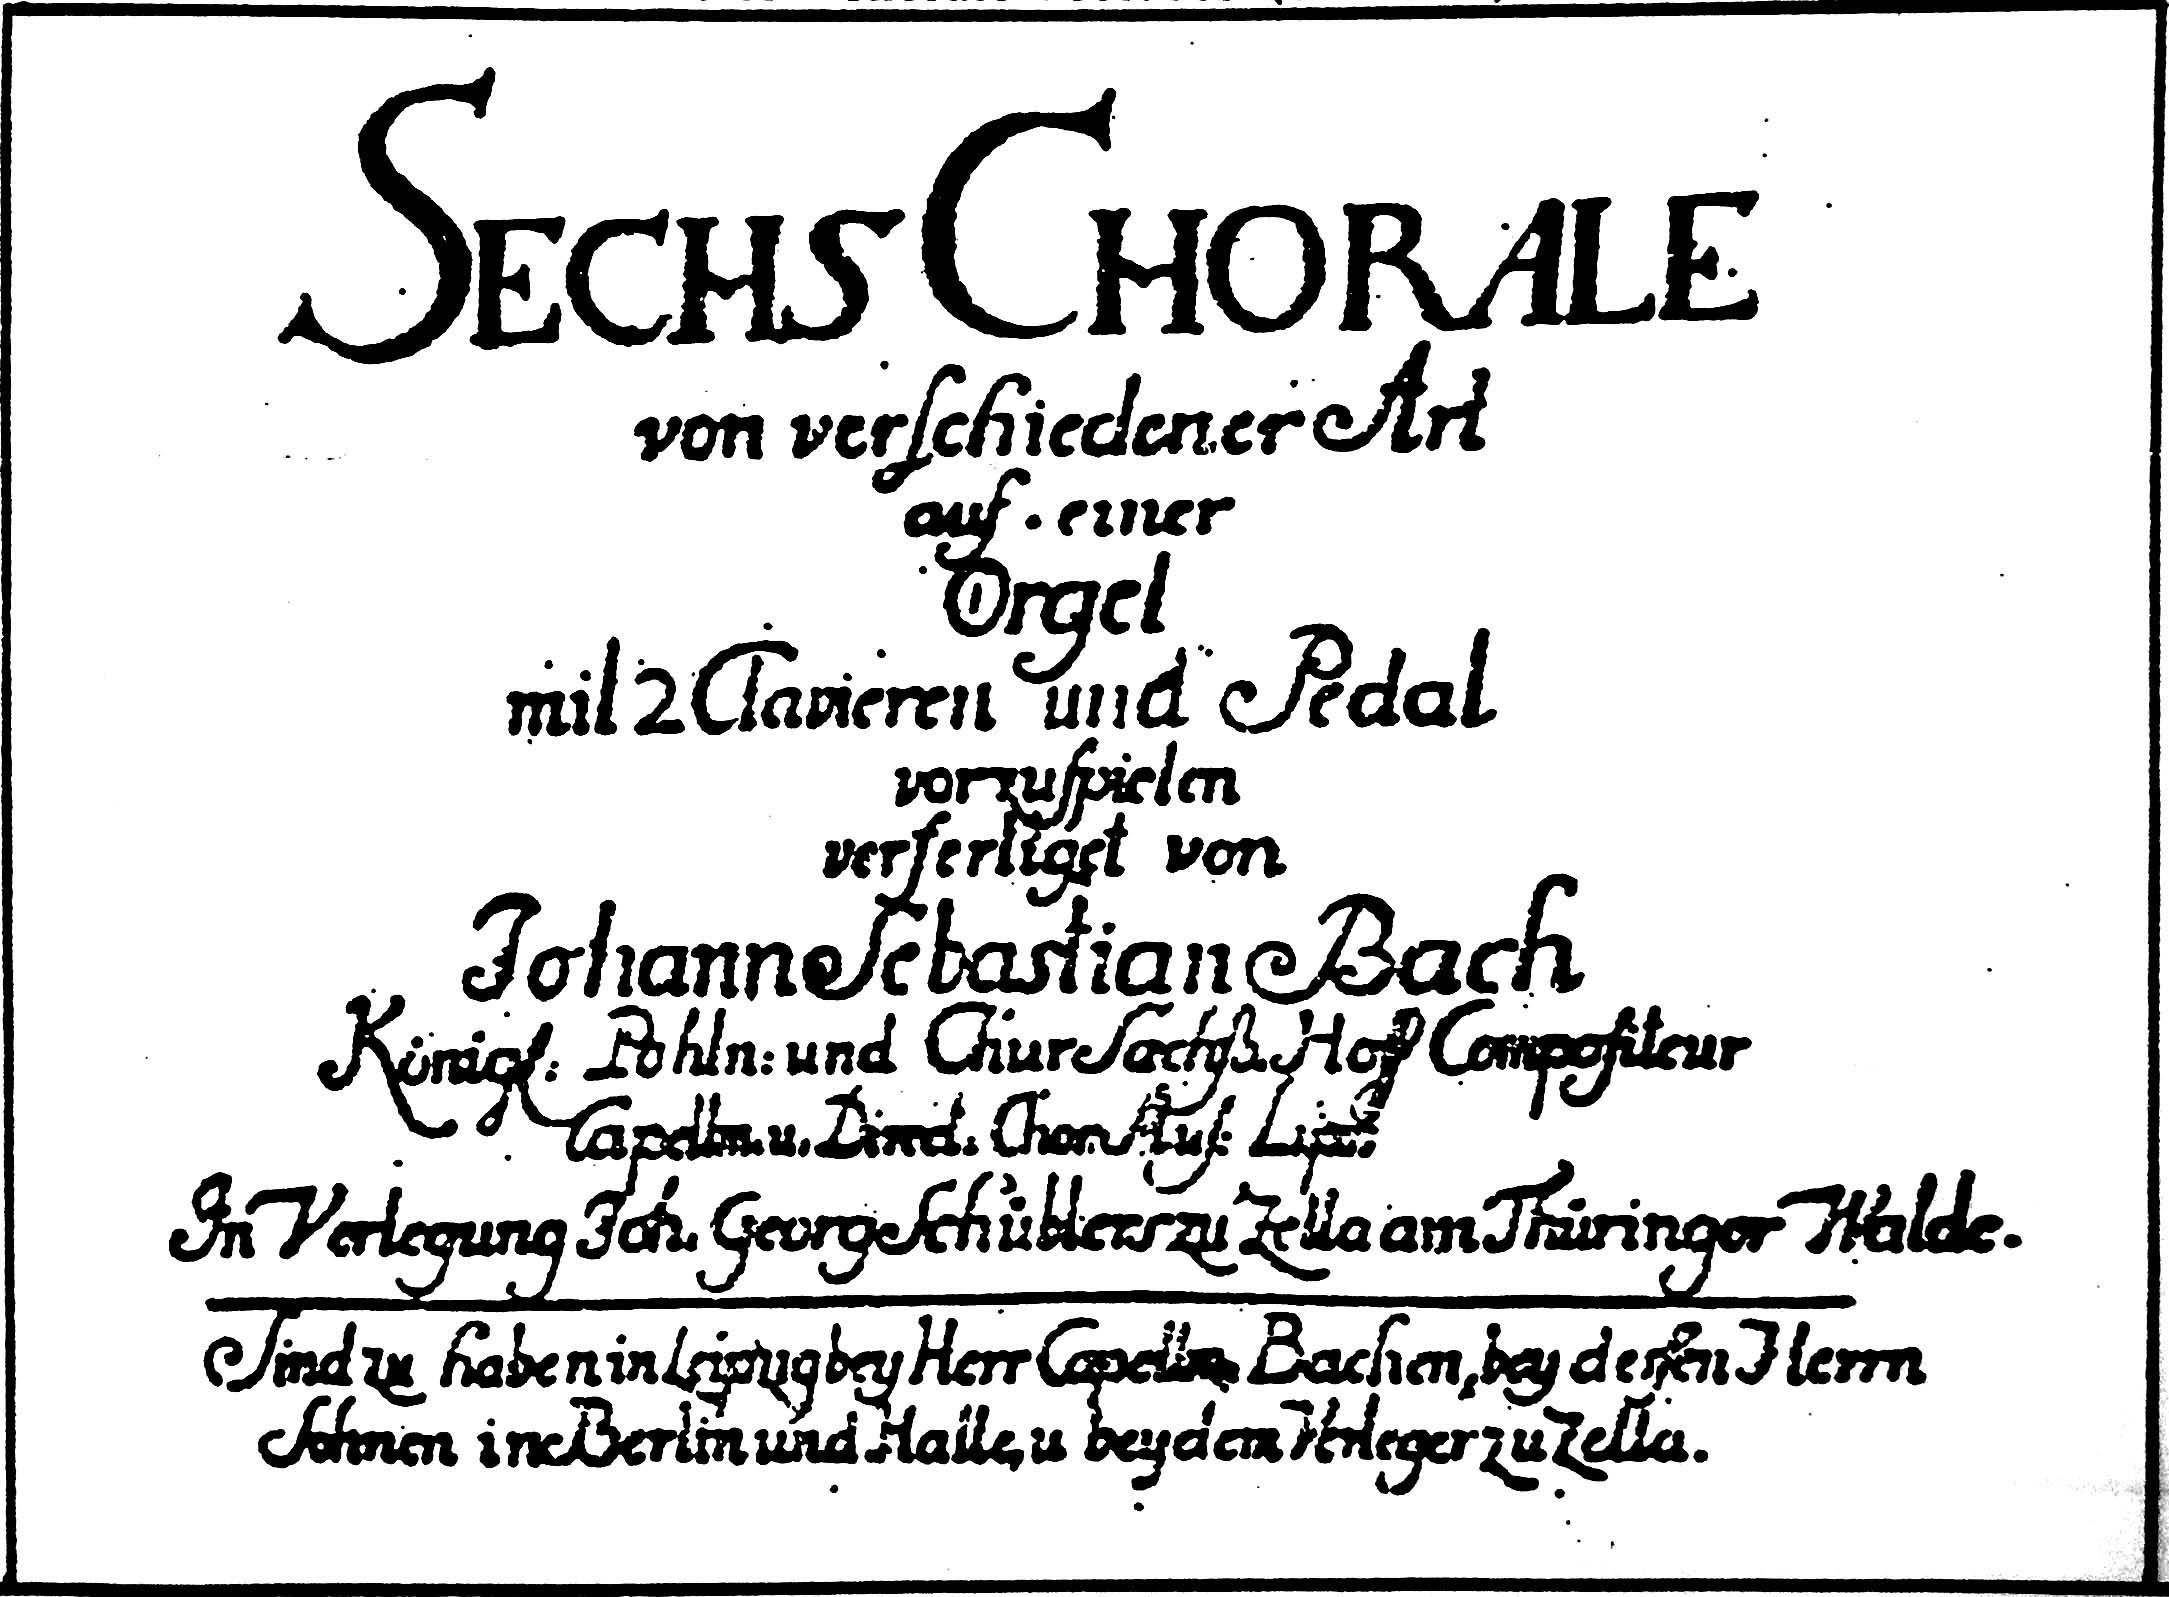 SECHS CHORALE
von verschiedener Art
auf einer
Orgel
mit 2 Clavieren und Pedal
vorzuspielen
verfertiget von
Johann Sebastian Bach
Königl: Pohln: und Chur Sæchß. Hoff Compositeur
Capellm. u. Direct. Chor. Mus: Lips:
In Verlegung Joh. Georg Schüblers zu Zella am Thüringer Walde.
Sind zu haben in Leipzig bey Herr Capellm. Bachen, bey dessen Herrn
Söhnen in Berlin und Halle, u bey dem Verleger zu Zella.